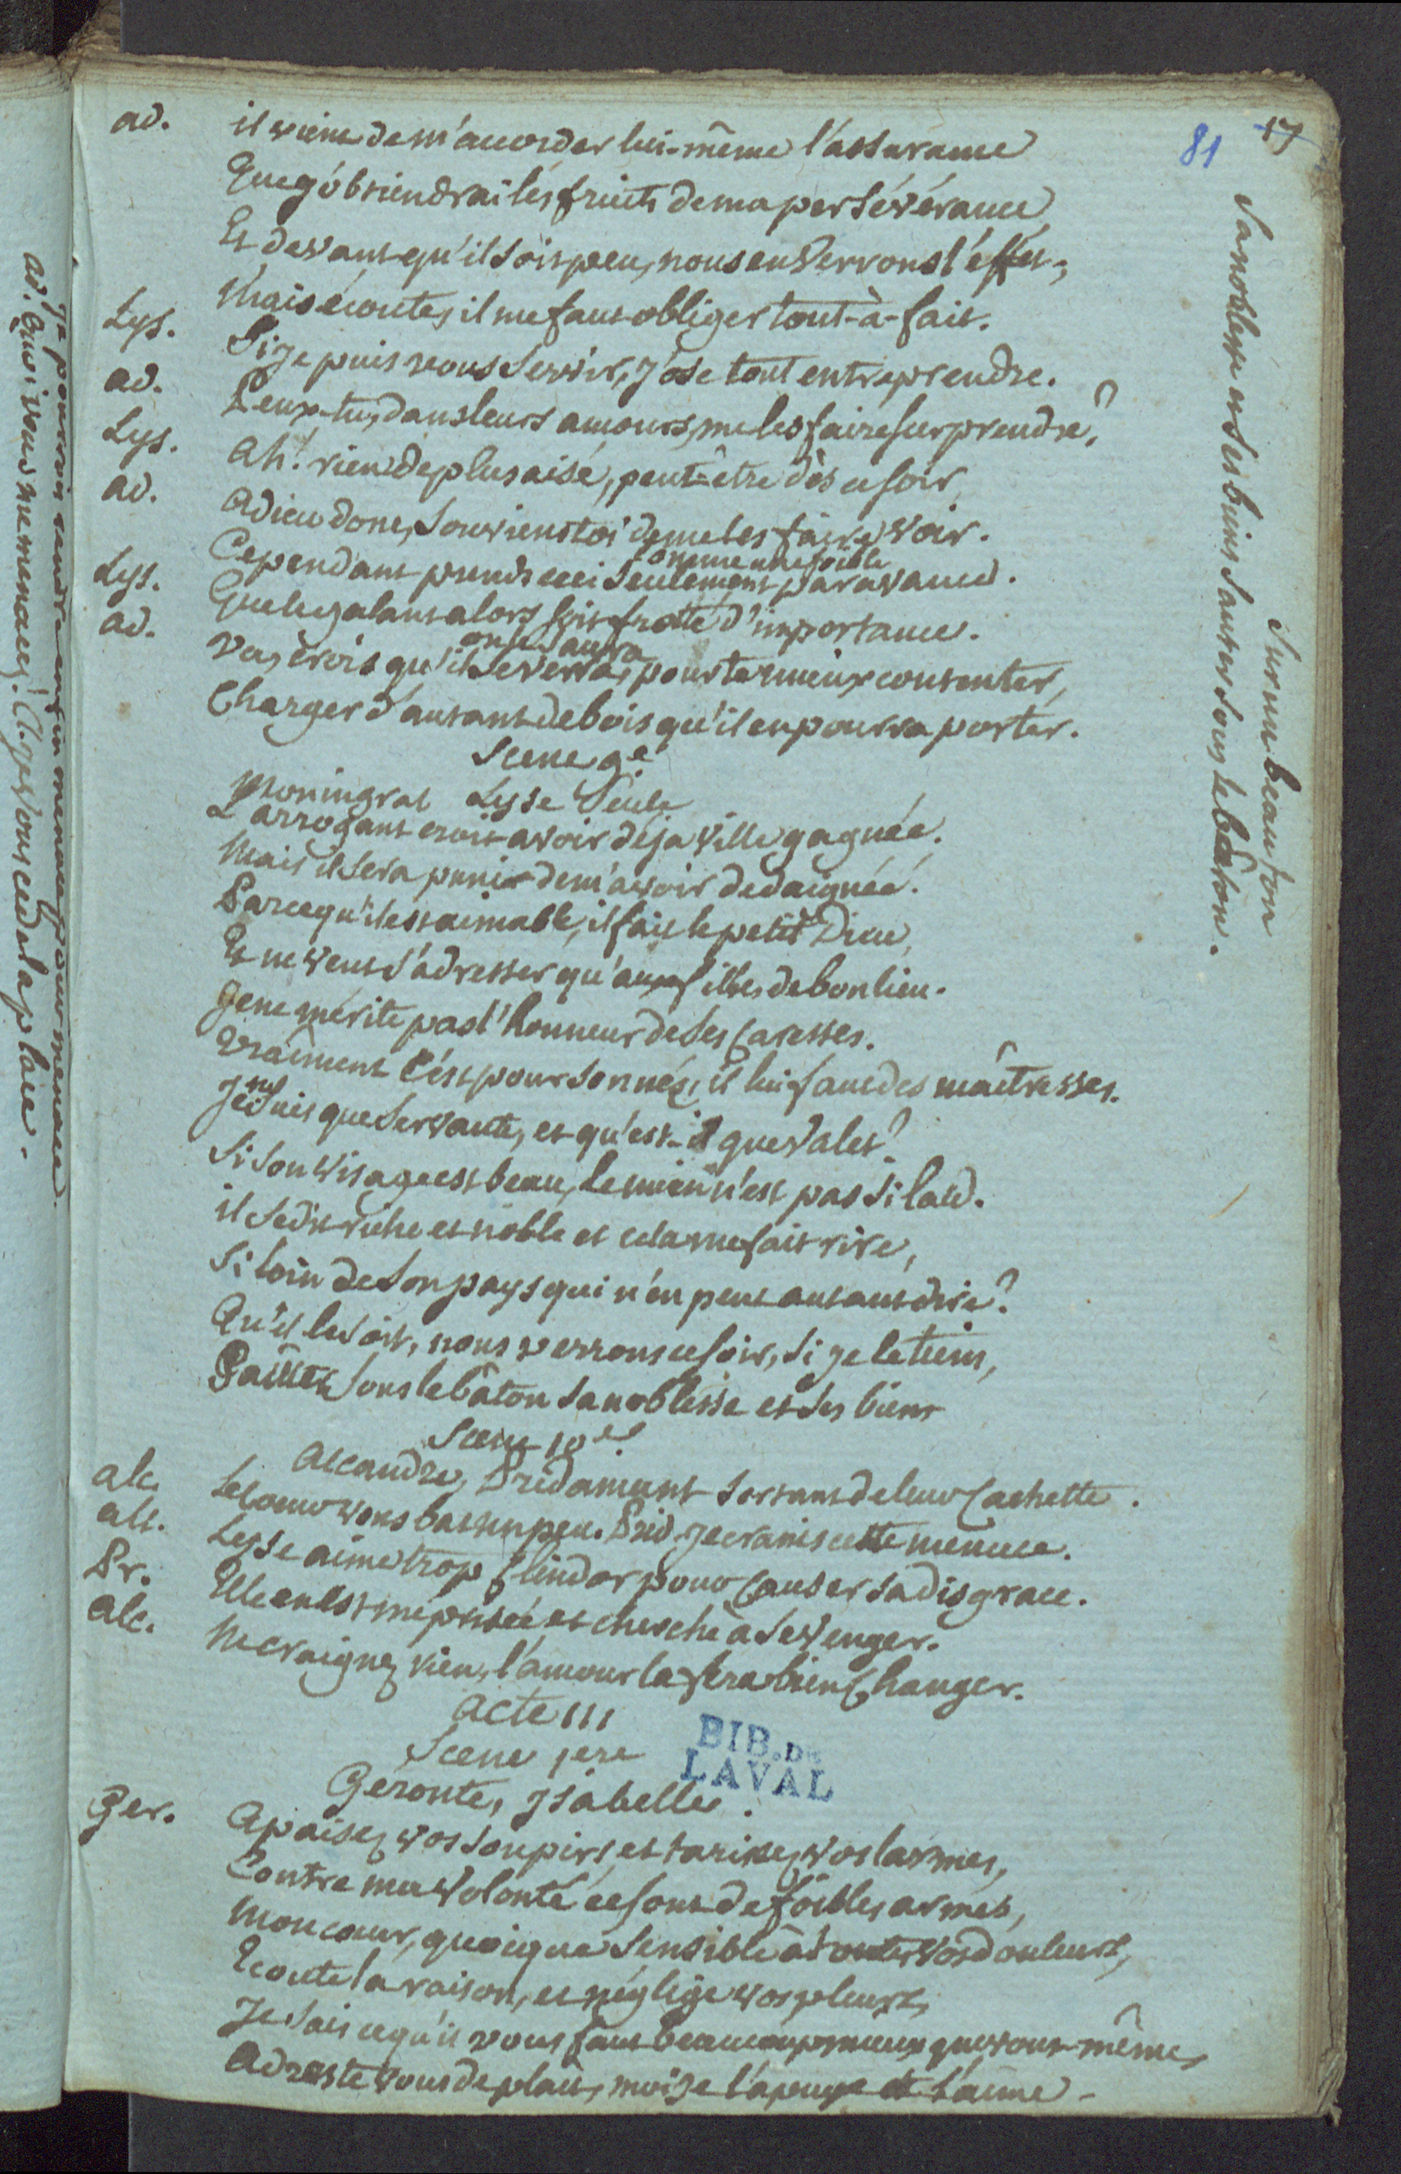 81 17
ad. il vient de m'accorder lui-même l'assurance
Que j'obtiendrai les fruits de ma persévérance
Et devant qu'il soit peu, nous en verrons l'effet;
Mais écoute, il me faut obliger tout-à-fait.
Lys. Si je puis vous servir, j'ose tout entreprendre.
ad. Peux-tu, dans leurs amours, me les faire surprendre?
Lys. Ah! rien de plus aisé, peut-être dès ce soir
ad. Adieu donc, souviens toi de me les faire voir.
comme une foible
Cependant prends ceci seulement par avance.
Lys. Que le galant alors soit frotté d'importance.
on se saura
ad. Va, crois qu'il se verra, pour te mieux contenter,
Charger d'autant de bois qu'il en pourra porter.
Scene 9e
Lysse Seule
L'arrogant croit avoir déja ville gagnée.
Mais il sera puni de m'avoir dedaignée.
Parcequ'il est aimable, il fait le petit Dieu,
Et ne veut s'adresser qu'aux filles de bon lieu.
Je ne mérite pas l'honneur de ses Caresses.
Vraiment c'est pour son nés, il lui faut des maîtresses.
Je ne suis que servante, et qu'est-il que valet?
Si son visage est beau, le mien n'est pas si laid.
il se dit riche et noble et cela me fait rire,
Si loin de son pays qui n'en peut autant dire?
Qu'il le soit, nous verrons ce soir, si je le tiens,
Sauter sous le bâton sa noblesse et ses biens
Scene 10e
Alcandre, Pridamant sortant de leur Cachette.
alc. Le coeur vous bat un peu. Prid. je crains cette menace.
alc. Lysse aime trop Clindor pour Causer sa disgrace.
Pr. Elle en est méprisée et cherche à se venger.
alc. Ne craignez rien, l'amour la fera bien Changer.
Acte III
Scene 1ere
Geronte, Isabelle.
BIB. DE
LAVAL
Ger. Apaisez vos soupirs, et tarissez vos larmes,
Contre ma volonté ce sont de foibles armes,
Mon coeur, quoique sensible à toutes vos douleurs,
Ecoute la raison, et néglige vos pleurs,
Je sais ce qu'il vous faut beaucoup mieux que vous-même,
Adraste vous deplait, moi je l'apuye et l'aime.
Sur un beau ton
Sa noblesse et ses biens sauter sous le bâton.
Je pourrois rendre enfin menace pour menace.
ad. Quoi vous me menacez! Cl. je vous cede la place.